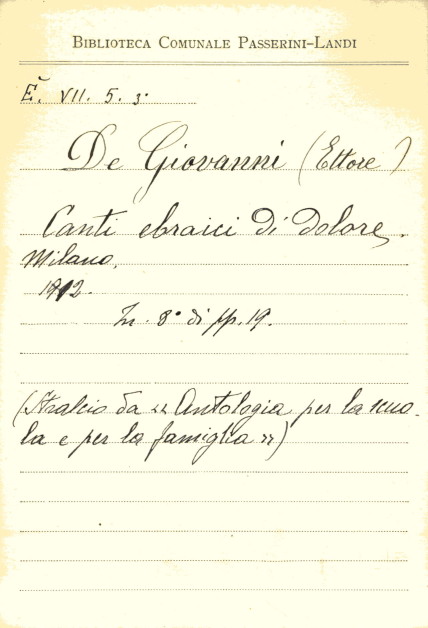 BIBLIOTECA COMUNALE PASSERINI-LANDI
E. VII. 5. 3.
De Giovanni (Ettore)
Canti ebraici di dolore.
Milano.
1912.
In. 8° di pp. 19.
(Stralcio da « Antologia per la scuo-
la e per la famiglia »)